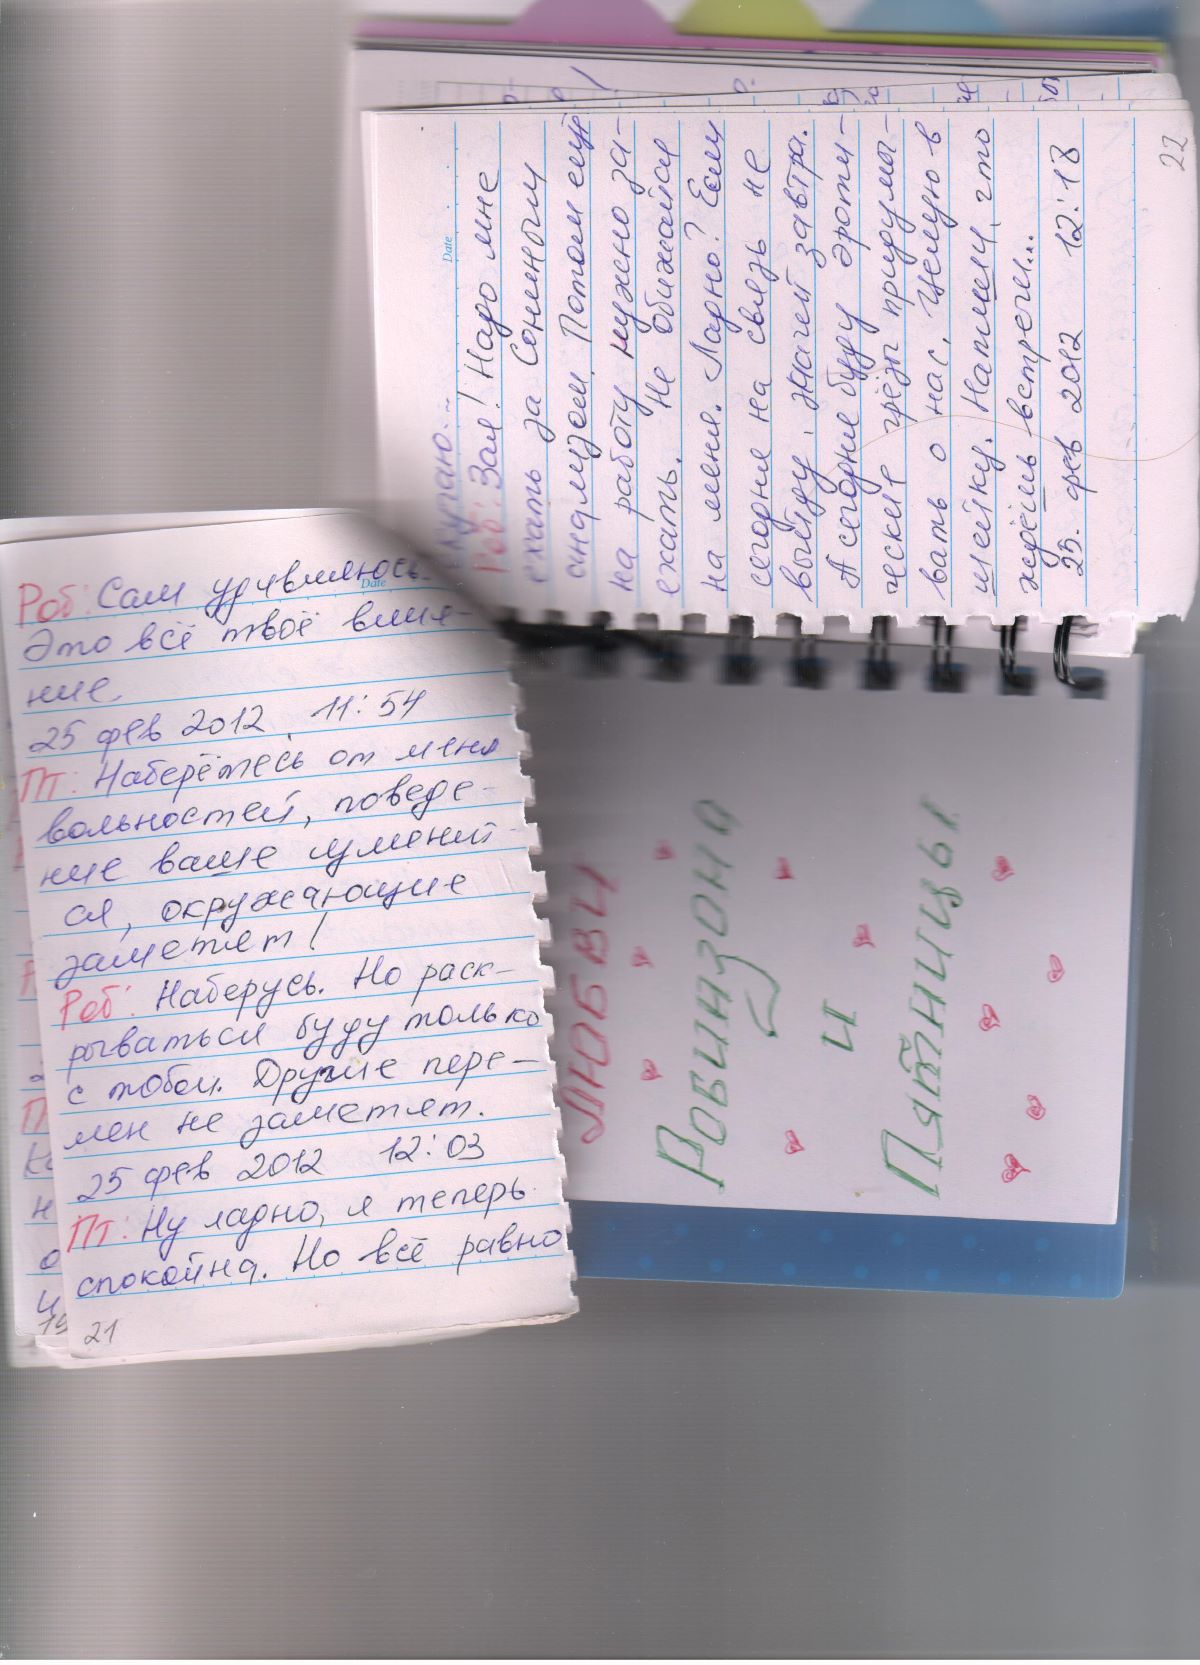 Роб: Сам удивляюсь.
Это всё твоё влия-
ние.
25 фев 2012 11:54
Пт: Наберётесь от меня
вольностей, поведе-
ние ваше изменит-
ся, окружающие
заметят!
Роб: Наберусь. Но раск-
рываться буду только
с тобой. Другие пере-
мен не заметят.
25 фев 2012 12:03
Пт: Ну ладно, я теперь
спокойна. Но всё равно
21
19
Date
Date
скучаю...
Роб: Зая! Надо мне
ехать за
Потом ещё
на работу нужно за-
ехать. Не обижайся
на меня. Ладно? Если
сегодня на связь не
выйду, значит завтра.
А сегодня буду эроти-
ческие грёзы придумы-
вать о нас. Целую в
шейку. Напиши, что
ждёшь встречи...
25. фев 2012 12:18
22
ЛЮБВИ
Робинзона
и
Пятницы